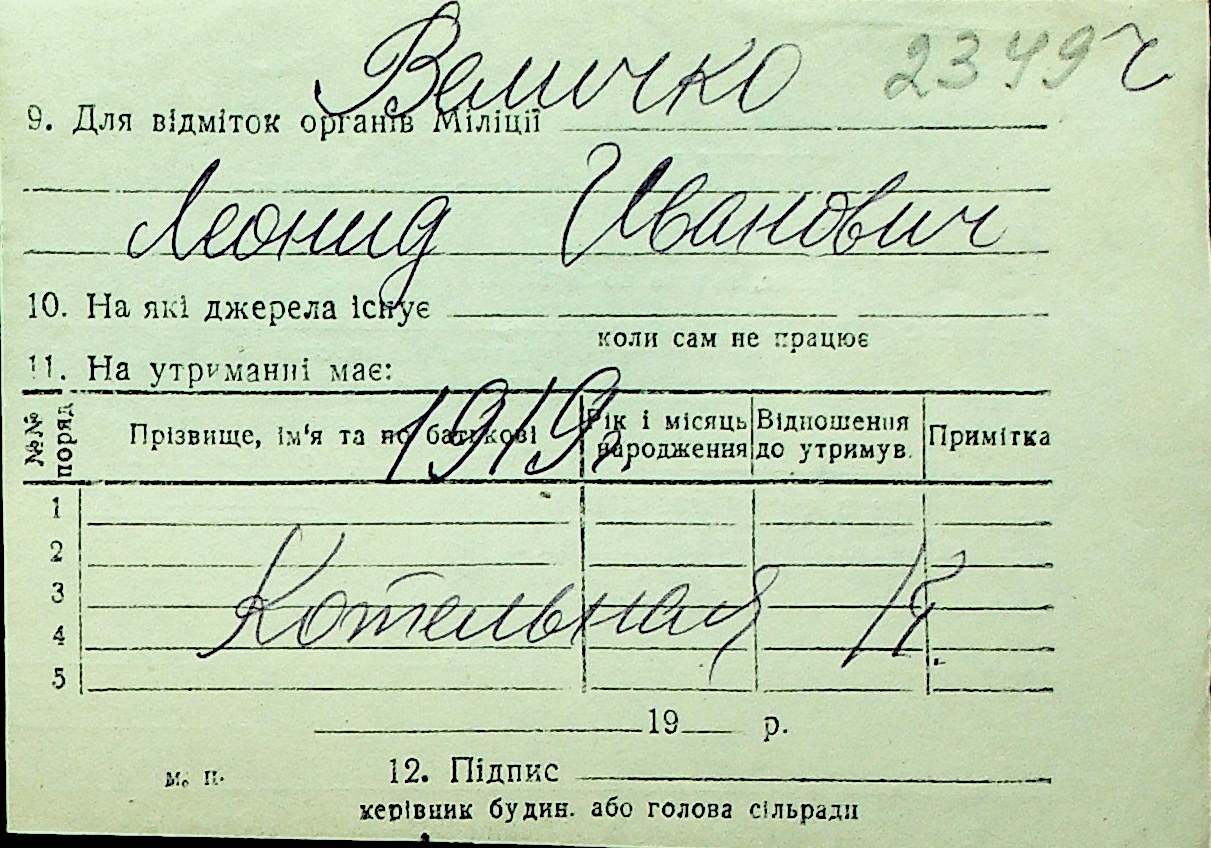 Величко 2349 ч
9. Для відміток органів Міліції
Леонид Иванович
10. На які джерела існує
коли сам не працює
11. На утриманні має:
1919 г.
№№ поряд Прізвище, ім'я та по батькові Рік і місяць народження Відношення до утримув. Примітка
1
2
3
Котельная 17.
4
5
19 р.
М. П. 12. Підпис
керівник будин. або голова сільради